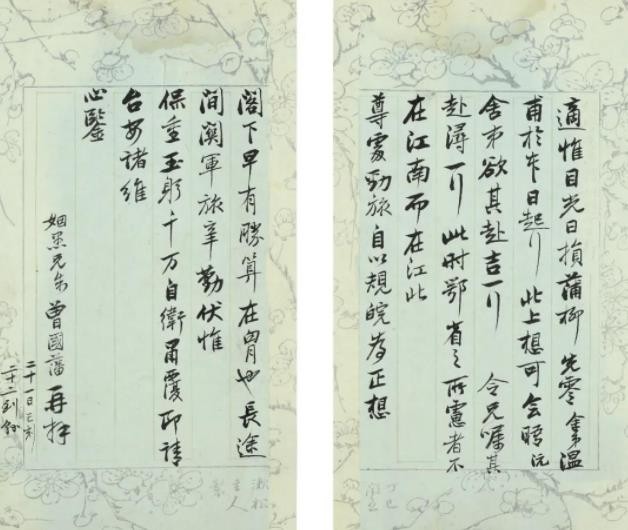 適惟目光日損蒲柳先零溫
甫於本日起行此上想可会晤沅
舍弟欲其赴吉一行 令兄囑其
赴潯一行此时鄂省之所慮者不
在江南而在江北
尊處勁旅自以規皖為正想
閣下早有勝算在胷也長途
軍旅辛勤伏惟
保重玉躬千万自衛肅覆即請
台安諸維
心鑒
姻愚兄弟曾國藩再拜
二十一日巳刻
二十二到